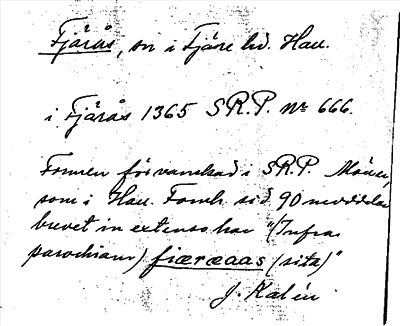 Fjärås, sn i Fjäre hd. Hall.
i Fjärås 1365 SRP. nr 666.
Formen förvanskad i SRP.
som i Hall. Fornh. sid. 90 meddelar
brevet in extenso har "(Infra
parochiam) fiæræaas (sita)"
J. Kalén